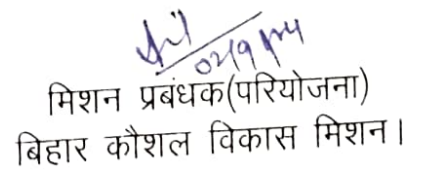 02/9/24
मिशन प्रबंधक(परियोजना)
बिहार कौशल विकास मिशन।